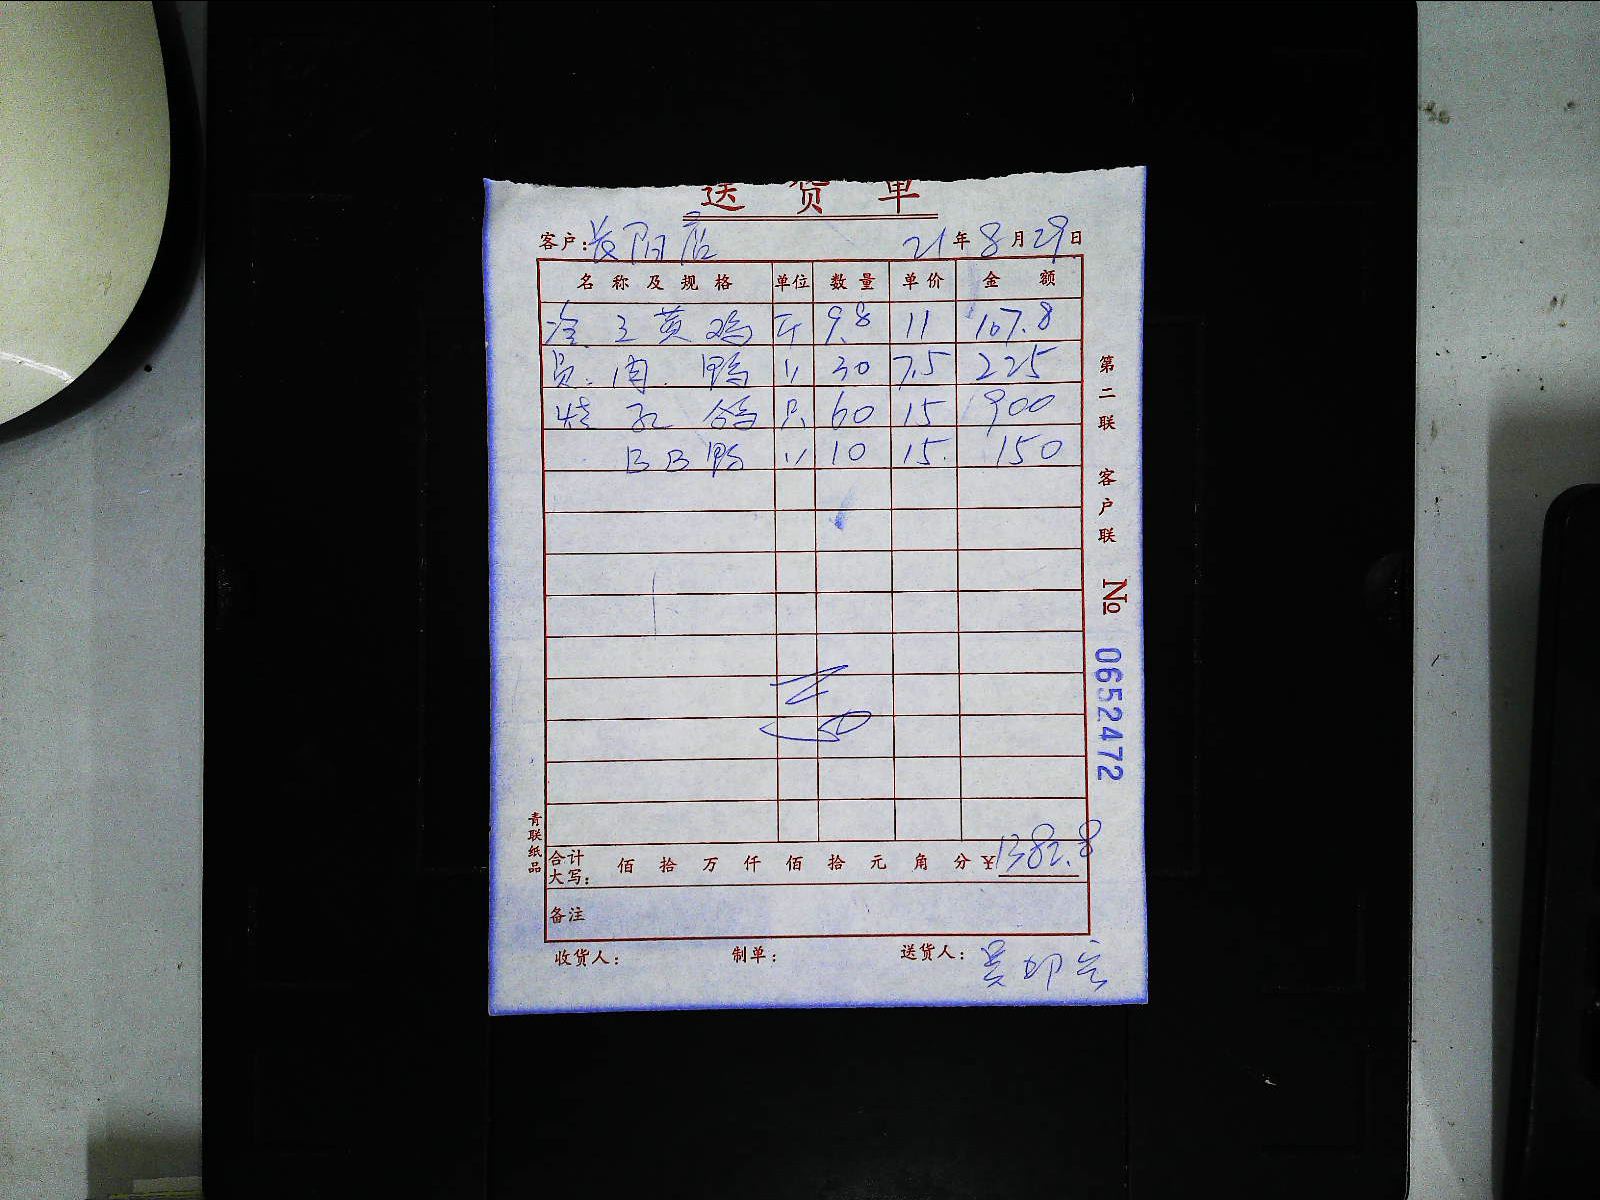 送货单
客户: 长阳店 21年8月29日
名称及规格 单位 数量 单价 金额
冷 三黄鸡 斤 9.8 11 107.8
肉 鸭 〃 30 7.5 225
乳鸽 只 60 15 900
BB鸭 〃 10 15 150
合计大写: 佰 拾 万 仟 佰 拾 元 角 分 ¥1382.8
备注
收货人: 制单: 送货人: 吴
第二联 客户联
№ 0652472
青联纸品